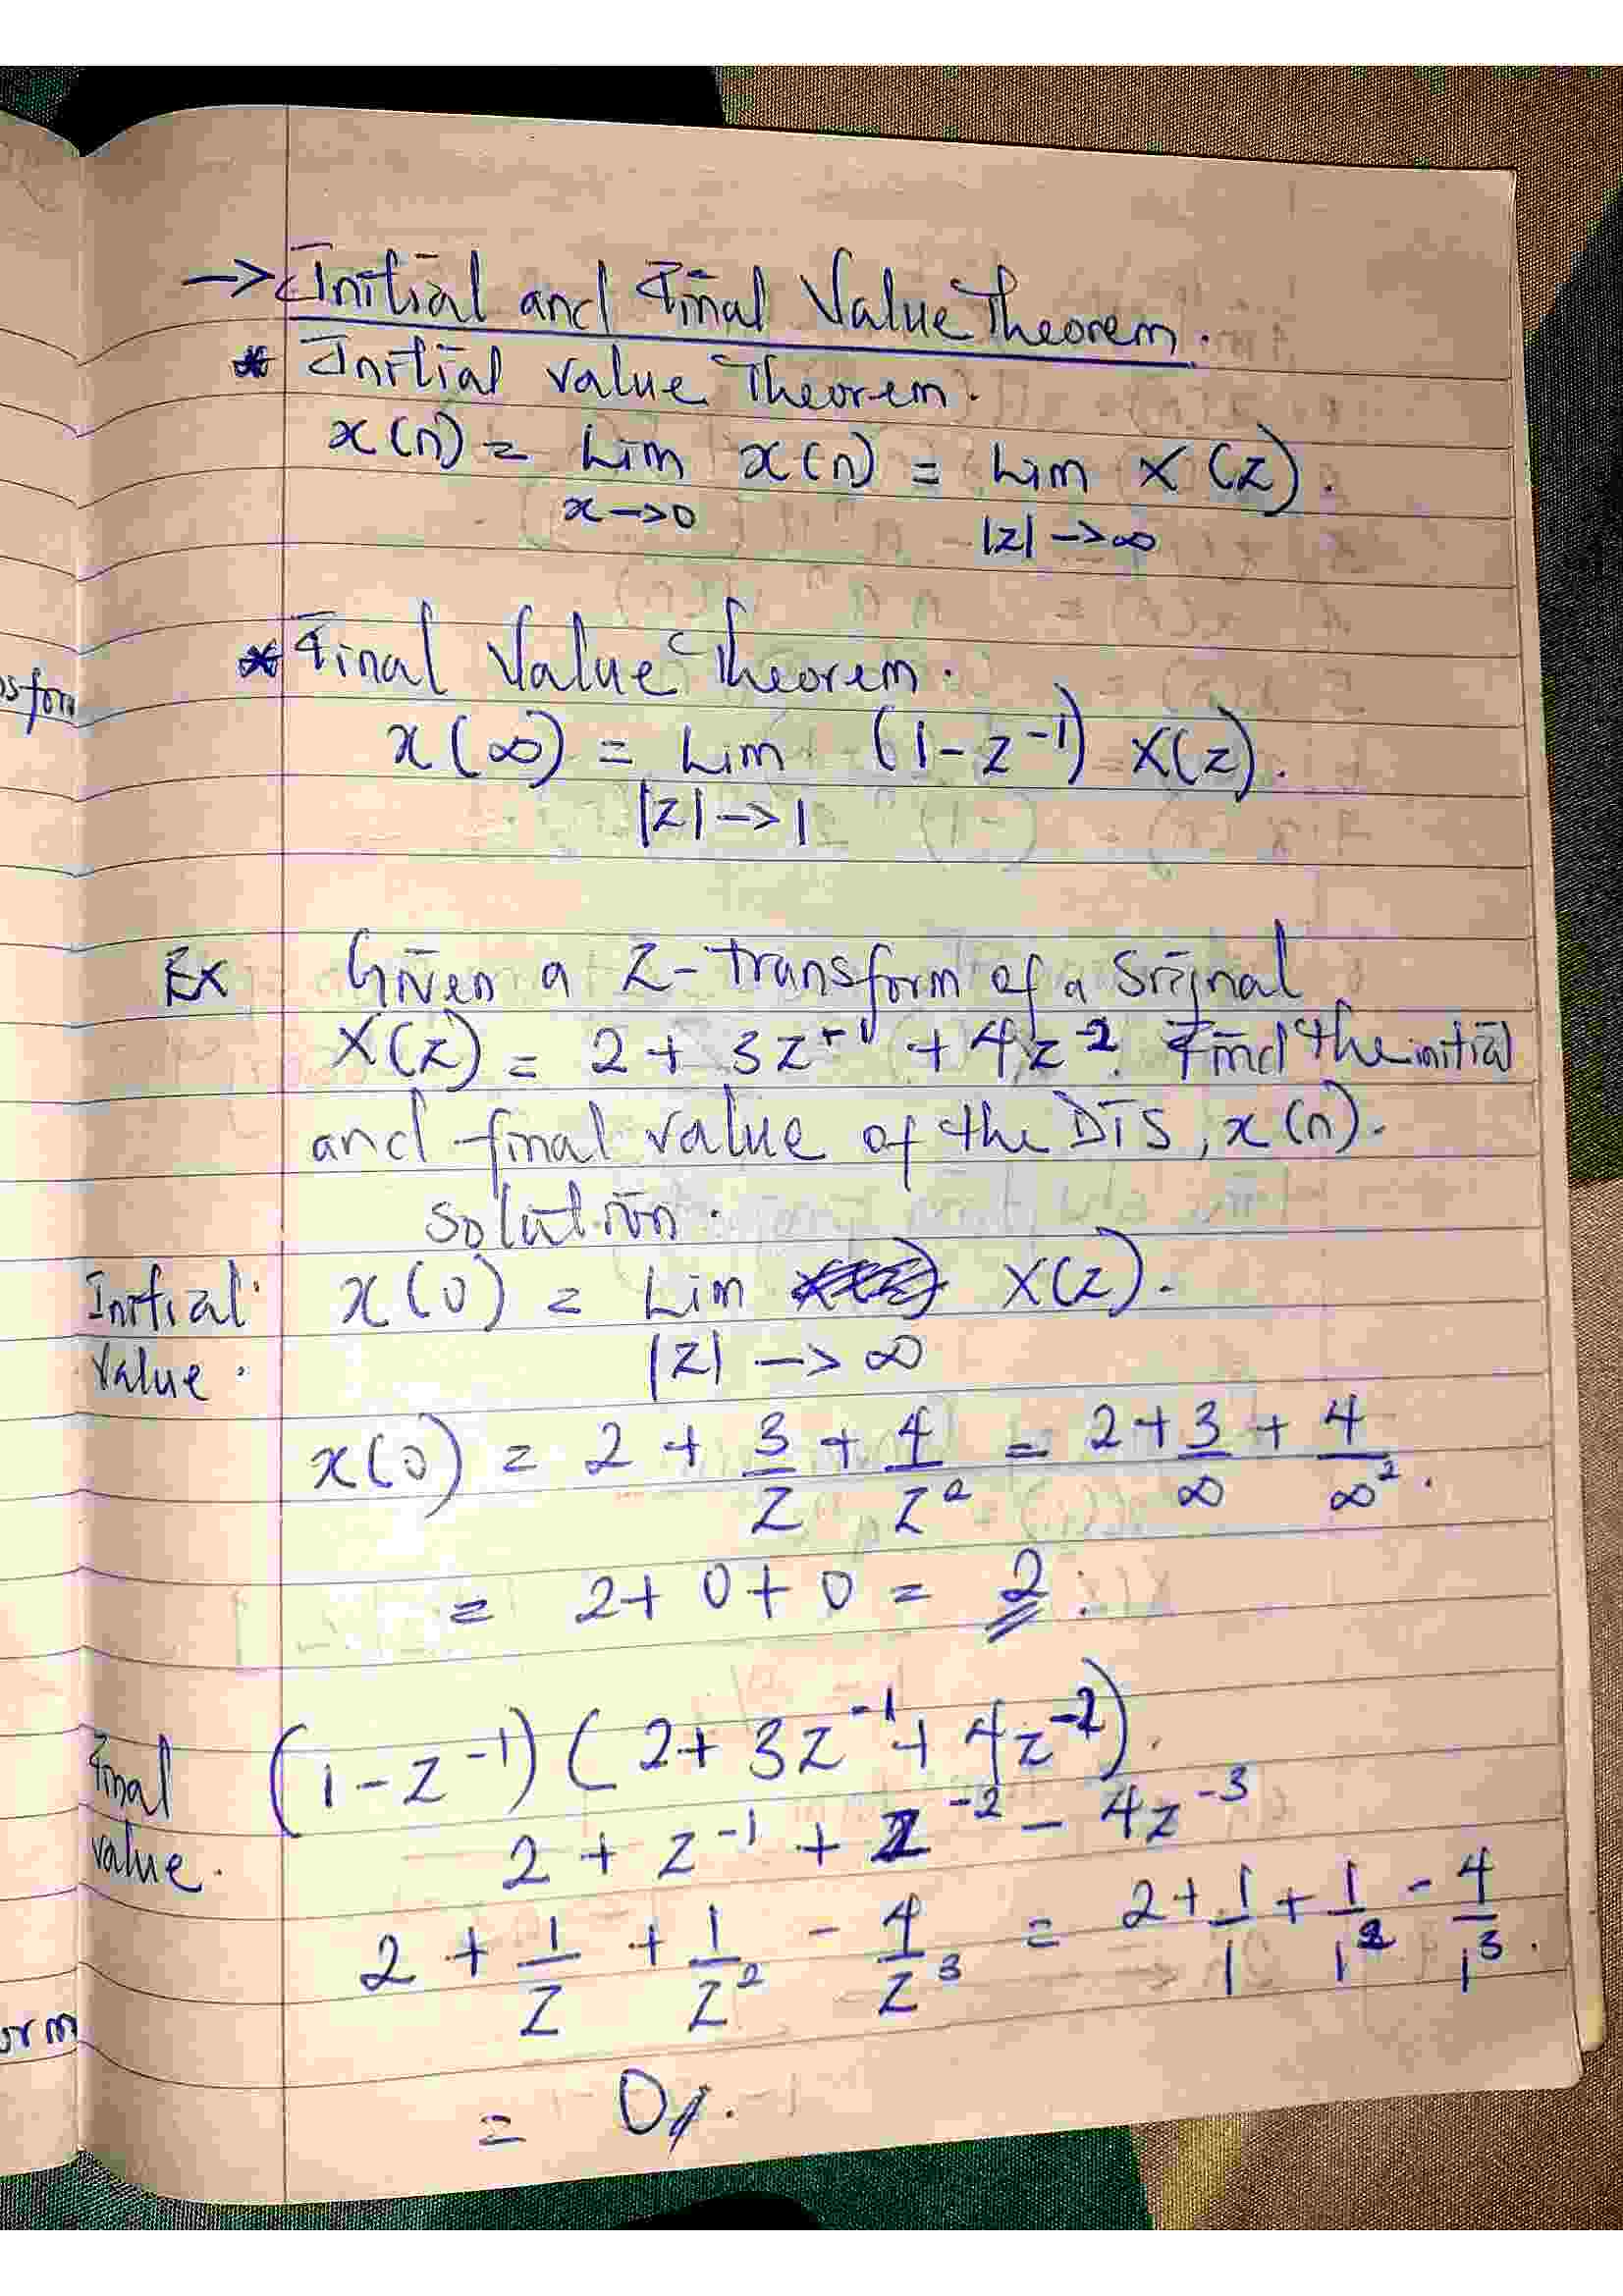 → Initial and Final Value Theorem.
* Initial value Theorem.
x(n) = Lim x(n) = Lim X(z).
x→0 |z|→∞
* Final Value Theorem.
x(∞) = Lim (1-z⁻¹) X(z).
|z|→1
Ex Given a Z-transform of a signal
X(z) = 2 + 3z⁻¹ + 4z⁻². Find the initial
and final value of the DTS, x(n).
solution.
Initial x(0) = Lim X(z).
Value. |z| → ∞
x(0) = 2 + 3/z + 4/z² = 2 + 3/∞ + 4/∞².
= 2 + 0 + 0 = 2.
Final (1-z⁻¹)(2 + 3z⁻¹ + 4z⁻²).
value. 2 + z⁻¹ + z⁻² - 4z⁻³
2 + 1/z + 1/z² - 4/z³ = 2 + 1/1 + 1/1² - 4/1³.
= 0.